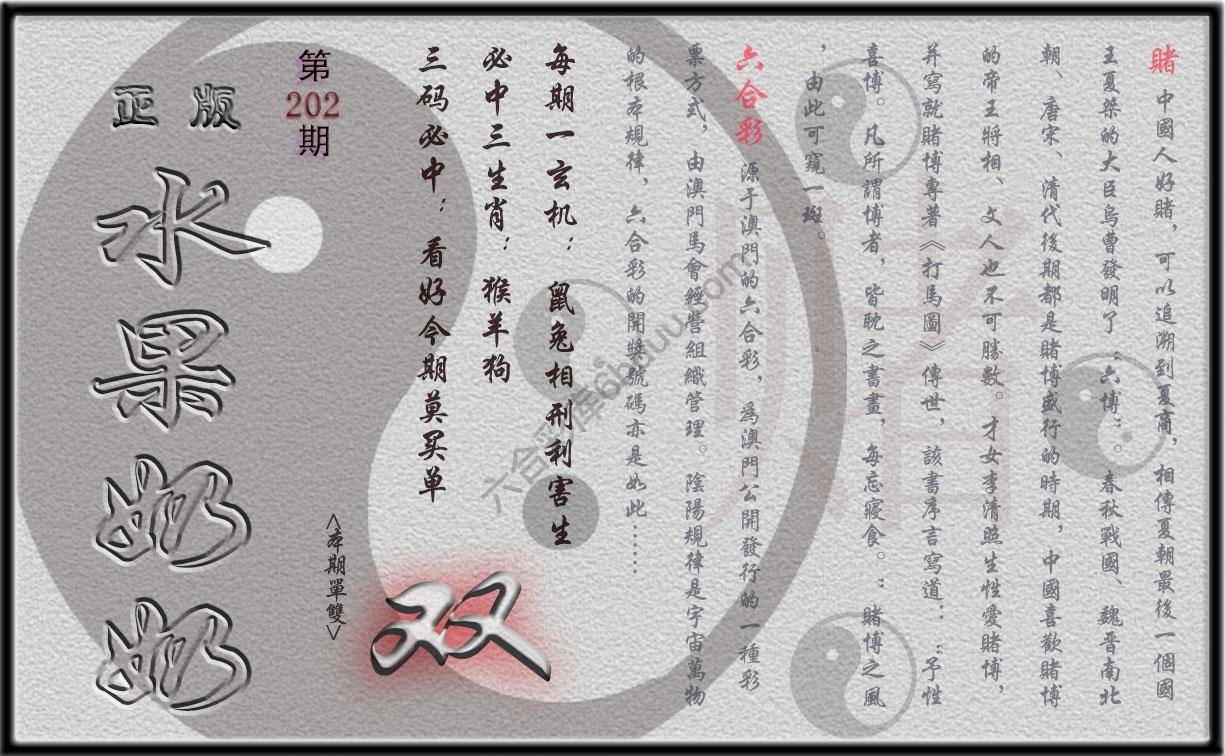 賭 中國人好賭，可以追溯到夏商，相傳夏朝最後一個國
王夏桀的大臣烏曹發明了“六博”。春秋戰國、魏晉南北
朝、唐宋、清代後期都是賭博盛行的時期，中國喜歡賭博
的帝王將相、文人也不可勝數。才女李清照生性愛賭博，
并寫就賭博專著《打馬圖》傳世，該書序言寫道：“予性
喜博。凡所謂博者，皆耽之書畫，每忘寢食。”賭博之風
，由此可窺一斑。
六合彩 源于澳門的六合彩，為澳門公開發行的一種彩
票方式，由澳門馬會經營組織管理。陰陽規律是宇宙萬物
的根本規律，六合彩的開獎號碼亦是如此……
每期一玄机：鼠兔相刑利害生
必中三生肖：猴羊狗
三码必中：看好今期莫买单
第202期
<本期單雙>
双
正版
水果奶奶
賭
六合彩库6huuu.com